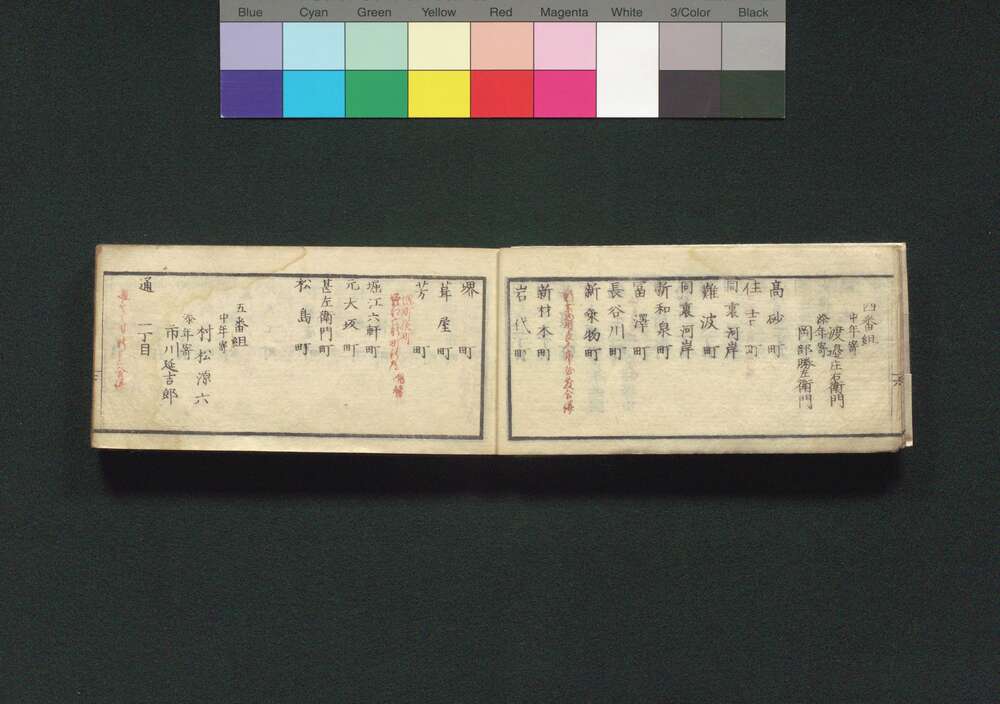 Blue Cyan Green Yellow Red Magenta White 3/Color Black
四番組
中年寄
渡邉庄右衛門
添年寄
岡部勝左衛門
高砂町
住吉町
同裏河岸
難波町
同裏河岸
新和泉町
富澤町
長谷川町
新乗物町
新材木町
岩代町
堺町
葺屋町
芳町
堀江六軒町
元大坂町
甚左衛門町
松島町
五番組
中年寄
村松源六
添年寄
市川延吉郎
通一丁目